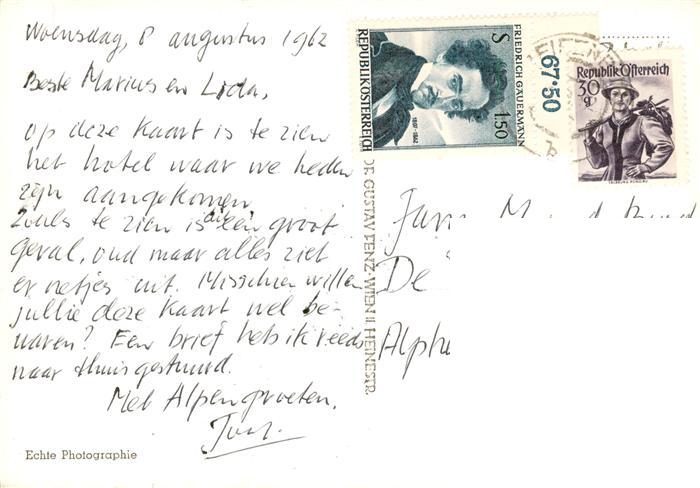 Woensdag, 8 augustus 1962
Beste Marius en Lida,
op deze kaart is te zien
het hotel waar we heden
zijn aangekomen.
Zoals te zien is dit een groot
geval, oud maar alles ziet
er netjes uit. Misschien willen
jullie deze kaart wel be-
waren? Een brief heb ik reeds
naar thuis gestuurd.
Met Alpengroeten,
Echte Photographie
DE GUSTAV FENZ·WIEN II. HEINESTR.
REPUBLIK ÖSTERREICH
1807-1862
S 1.50
FRIEDRICH GAUERMANN
67·50
Republik Österreich
30 g
SALZBURG, PONGAU
De
Alph